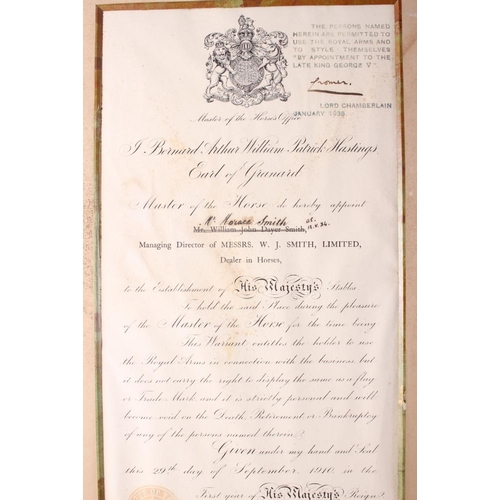 THE PERSONS NAMED
HEREIN ARE PERMITTED TO
USE THE ROYAL ARMS AND
TO STYLE THEMSELVES
"BY APPOINTMENT TO THE
LATE KING GEORGE V".
Cromer.
LORD CHAMBERLAIN
JANUARY 1936
Master of the Horse's Office
I Bernard Arthur William Patrick Hastings
Earl of Granard
Master of the Horse do hereby appoint
Mr Horace Smith
Mr. William John Dayer Smith,
Managing Director of MESSRS. W. J. SMITH, LIMITED,
Dealer in Horses,
to the Establishment of His Majesty's Stables
To hold the said Place during the pleasure
of the Master of the Horse for the time being
This Warrant entitles the holder to use
the Royal Arms in connection with the business but
it does not carry the right to display the same as a flag
or Trade Mark and it is strictly personal and will
become void on the Death, Retirement or Bankruptcy
of any of the persons named therein.
Given under my hand and Seal
this 29th day of September, 1910, in the
First year of His Majesty's Reign.